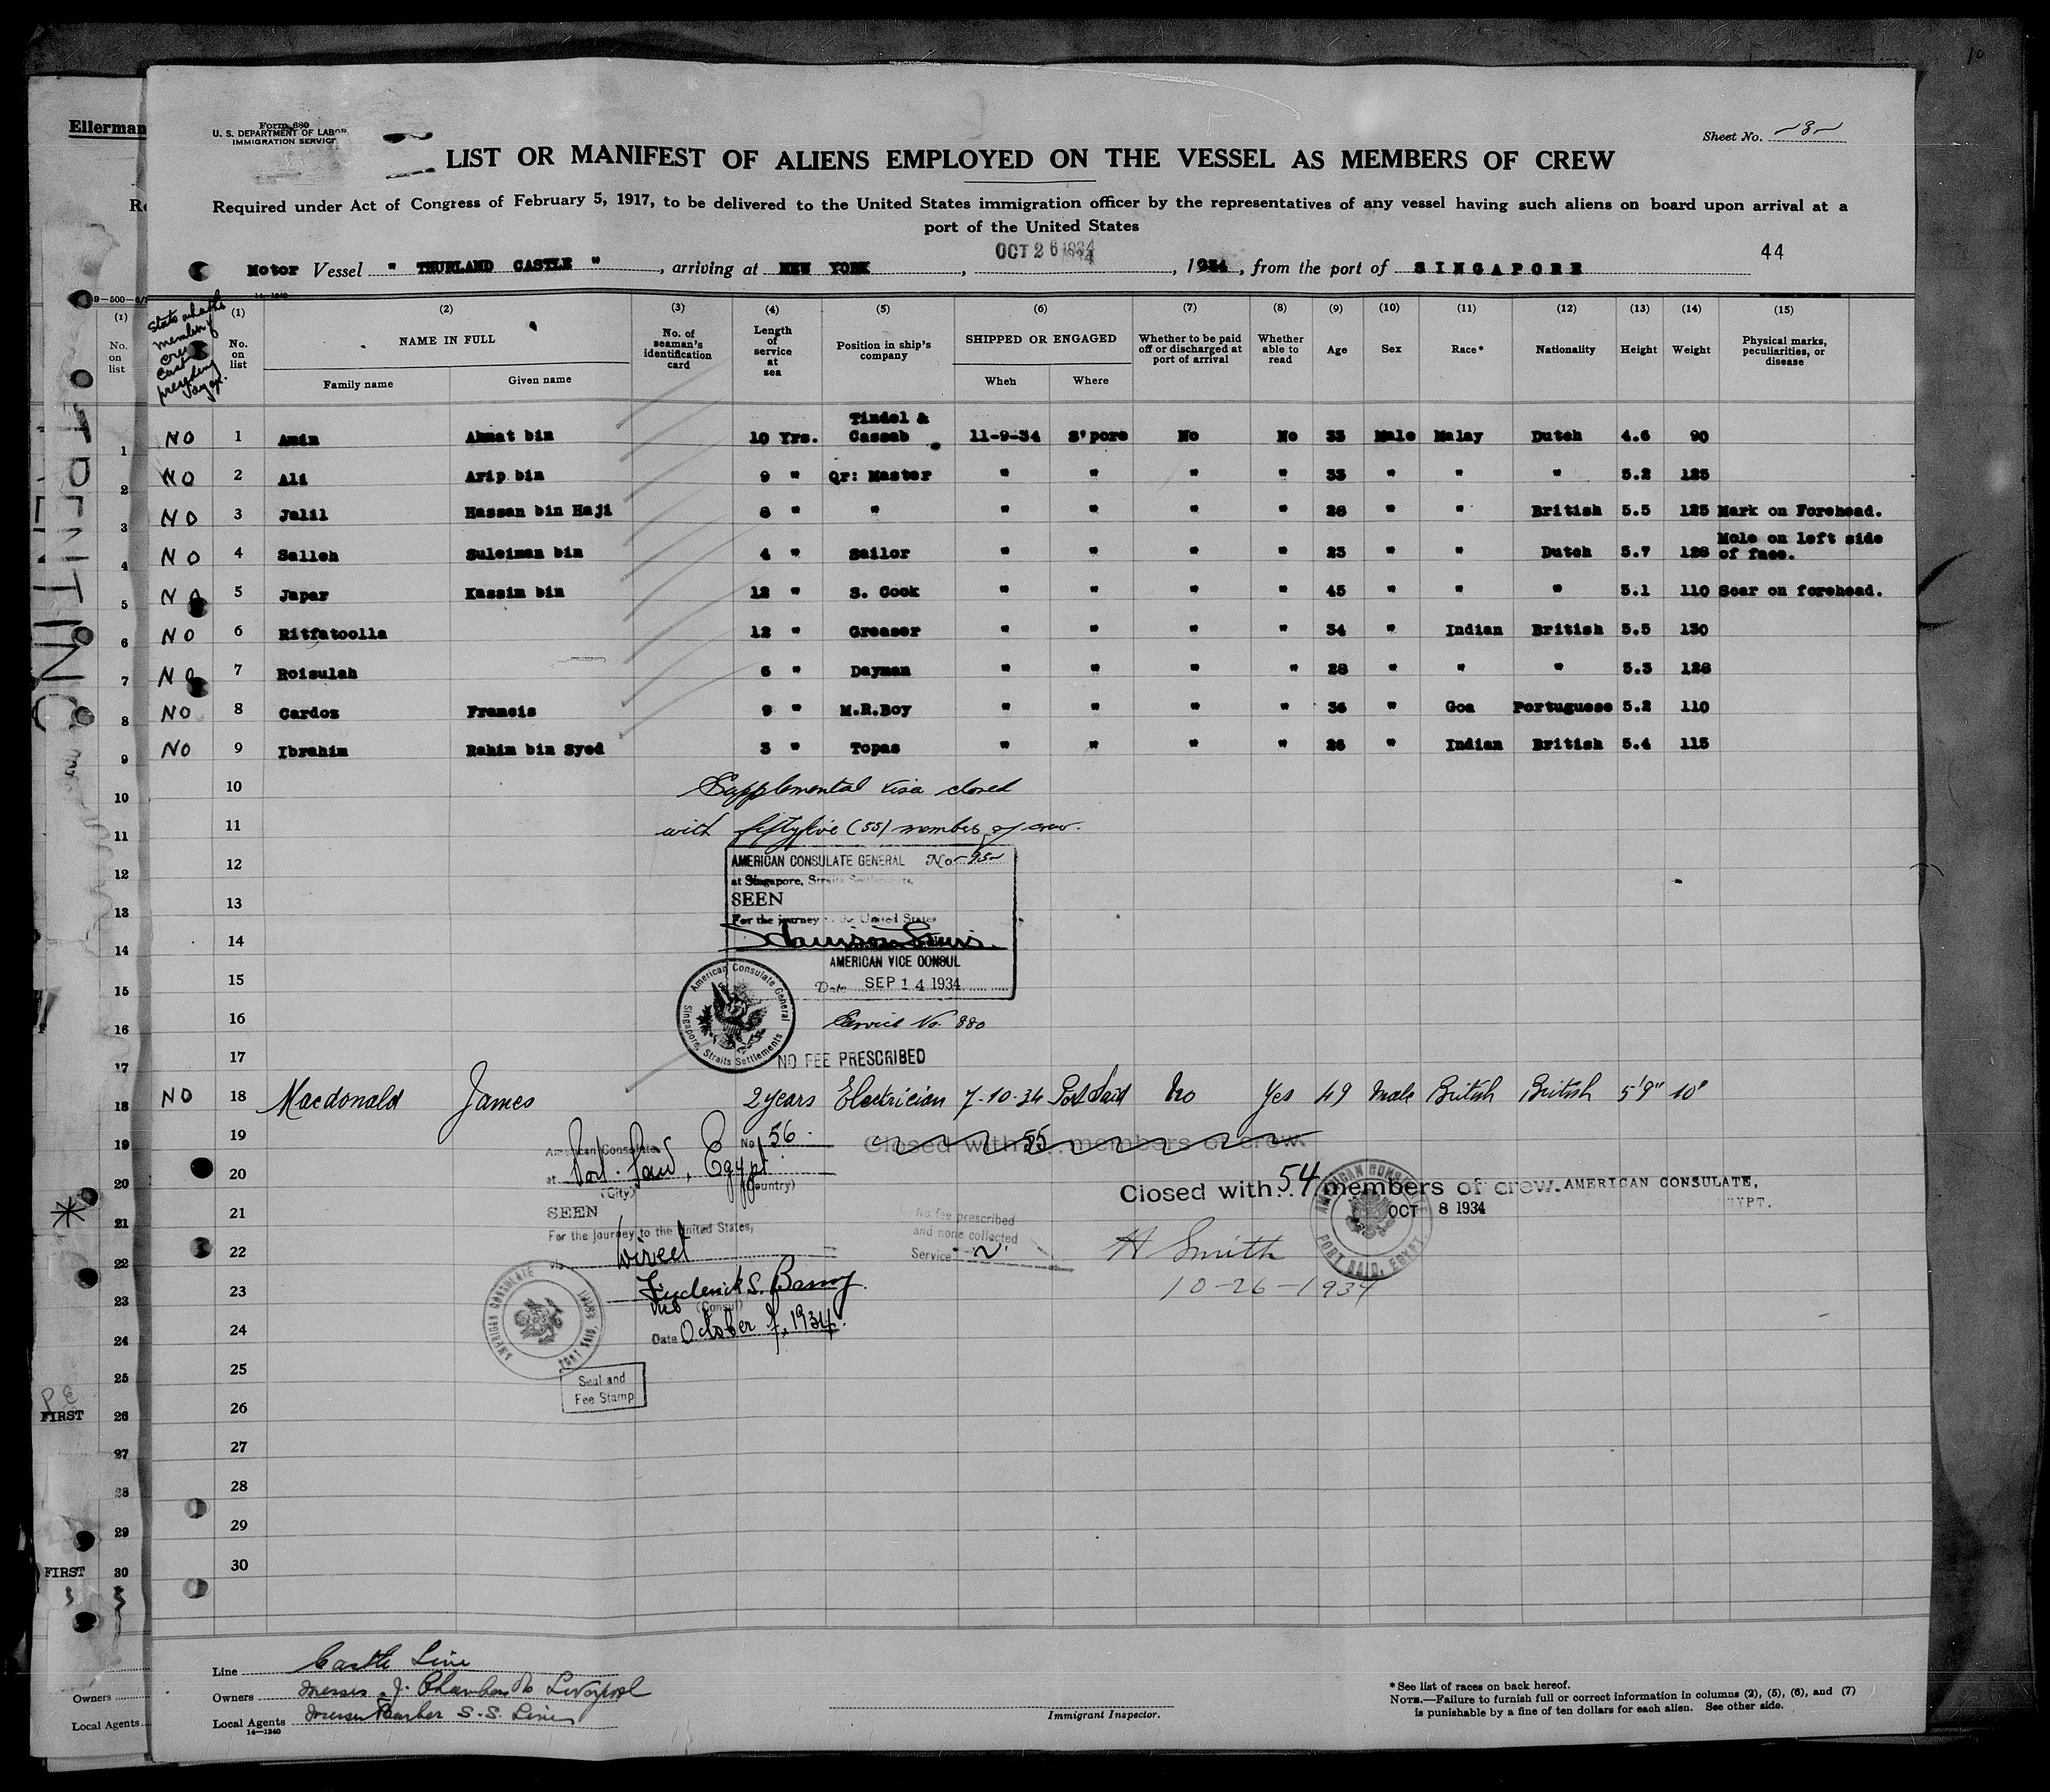 10
Ellerman
Form 680
U. S. DEPARTMENT OF LABOR
IMMIGRATION SERVICE
Sheet No. -3-
LIST OR MANIFEST OF ALIENS EMPLOYED ON THE VESSEL AS MEMBERS OF CREW
Required under Act of Congress of February 5, 1917, to be delivered to the United States immigration officer by the representatives of any vessel having such aliens on board upon arrival at a
port of the United States
Motor Vessel " THURLAND CASTLE ", arriving at NEW YORK, OCT 26 1934, 1934, from the port of SINGAPORE 44
14-1240
State whether member of crew last preceding voyage.
(1) No. on list
(2) NAME IN FULL
Family name Given name
(3) No. of seaman's identification card
(4) Length of service at sea
(5) Position in ship's company
(6) SHIPPED OR ENGAGED
When Where
(7) Whether to be paid off or discharged at port of arrival
(8) Whether able to read
(9) Age
(10) Sex
(11) Race*
(12) Nationality
(13) Height
(14) Weight
(15) Physical marks, peculiarities, or disease
NO 1 Amin Ahmat bin 10 Yrs. Tindel & Cassab 11-9-34 S'pore No No 33 Male Malay Dutch 4.6 90
NO 2 Ali Arip bin 9 " Qr: Master " " " " 33 " " " 5.2 125
NO 3 Jalil Hassan bin Haji 8 " " " " " " 28 " " British 5.5 125 Mark on Forehead.
NO 4 Salleh Suleiman bin 4 " Sailor " " " " 23 " " Dutch 5.7 128 Mole on left side of face.
NO 5 Japar Kassim bin 12 " S. Cook " " " " 45 " " " 5.1 110 Scar on forehead.
NO 6 Ritfatoolla 12 " Greaser " " " " 34 " Indian British 5.5 130
NO 7 Roisulah 6 " Dayman " " " " 28 " " " 5.3 128
NO 8 Cardoz Francis 9 " M.R.Boy " " " " 36 " Goa Portuguese 5.2 110
NO 9 Ibrahim Rahim bin Syed 3 " Topas " " " " 26 " Indian British 5.4 115
10 Supplemental visa closed
11 with fiftyfive (55) members of crew.
12 AMERICAN CONSULATE GENERAL No -95-
at Singapore, Straits Settlements,
13 SEEN
For the journey to the United States
14
AMERICAN VICE CONSUL
15 Date SEP 14 1934
American Consulate General Singapore, Straits Settlements
16 Service No. 880
17 NO FEE PRESCRIBED
NO 18 Macdonald James 2 years Electrician 7-10-34 Port Said No Yes 49 Male British British 5'9" 10"
19 American Consulate No 56 Closed with 55 members of crew.
20 at Port Said, Egypt
(City) (Country)
Closed with 54 members of crew. AMERICAN CONSULATE,
OCT 8 1934
AMERICAN CONSULATE PORT SAID, EGYPT
21 SEEN
For the journey to the United States,
No fee prescribed
and none collected
Service
22 via Direct
H Smith
10-26-1934
23 Frederick S. Barny
Vice (Consul)
24 Date October 8, 1934.
AMERICAN CONSULATE PORT SAID,
25 Seal and
Fee Stamp
26
27
28
29
30
FIRST
FIRST
Line Castle Line
Owners Messrs. J. Chambers Co Liverpool
Local Agents Messrs Barber S.S. Lines
14-1240
Immigrant Inspector.
* See list of races on back hereof.
NOTE.—Failure to furnish full or correct information in columns (2), (5), (6), and (7)
is punishable by a fine of ten dollars for each alien. See other side.
Owners
Local Agents